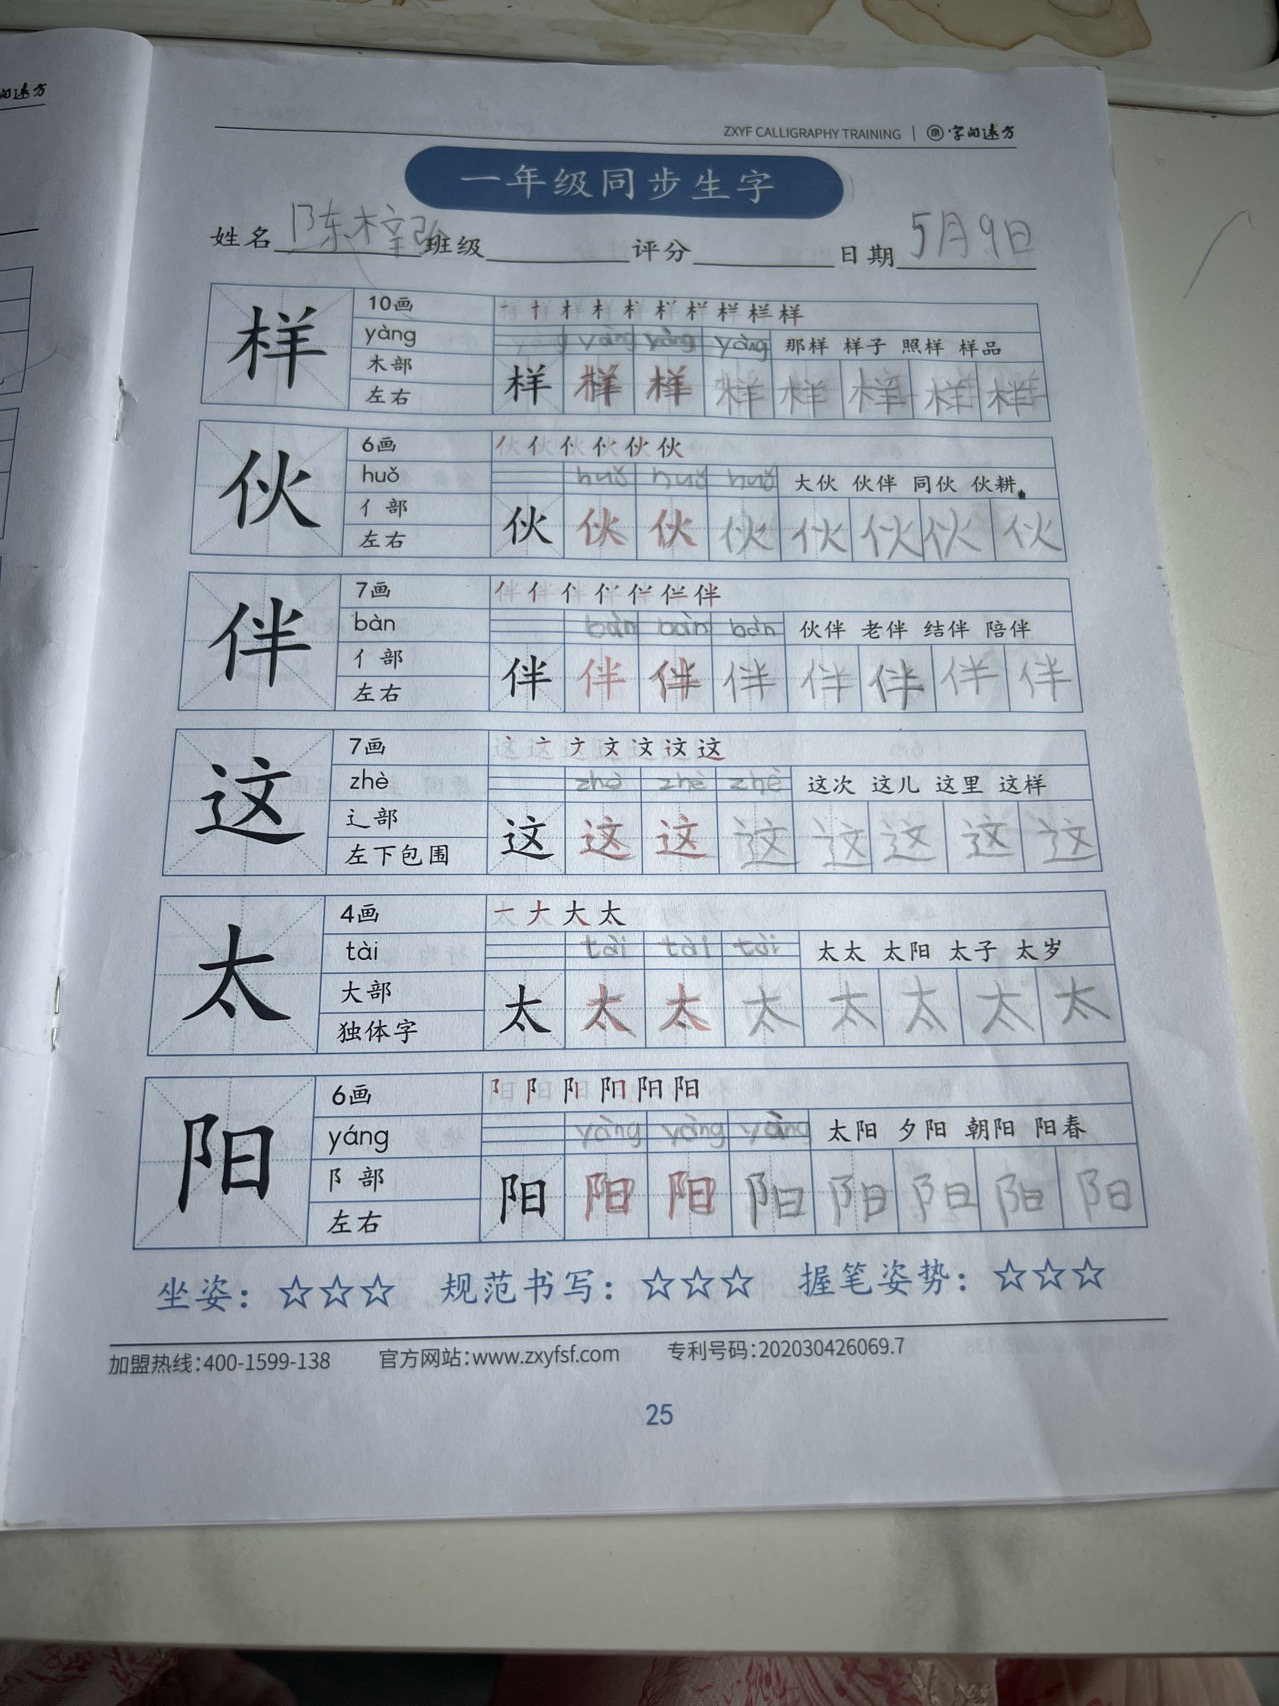 向远方
ZXYF CALLIGRAPHY TRAINING | 字向远方
一年级同步生字
姓名 陈梓 班级 评分 日期 5月9日
样
10画
yàng yàng yàng yàng
那样 样子 照样 样品
木部
左右
样 样 样 样 样 样 样 样
伙
6画
huǒ huǒ huǒ huǒ
大伙 伙伴 同伙 伙耕
亻部
左右
伙 伙 伙 伙 伙 伙 伙 伙
伴
7画
bàn bàn bàn bàn
伙伴 老伴 结伴 陪伴
亻部
左右
伴 伴 伴 伴 伴 伴 伴 伴
这
7画
zhè zhè zhè zhè
这次 这儿 这里 这样
辶部
左下包围
这 这 这 这 这 这 这 这
太
4画 一 大 大 太
tài tài tài tài
太太 太阳 太子 太岁
大部
独体字
太 太 太 太 太 太 太 太
阳
6画
yáng yáng yáng yáng
太阳 夕阳 朝阳 阳春
阝部
左右
阳 阳 阳 阳 阳 阳 阳 阳
坐姿：☆☆☆ 规范书写：☆☆☆ 握笔姿势：☆☆☆
加盟热线：400-1599-138 官方网站：www.zxyfsf.com 专利号码：202030426069.7
25